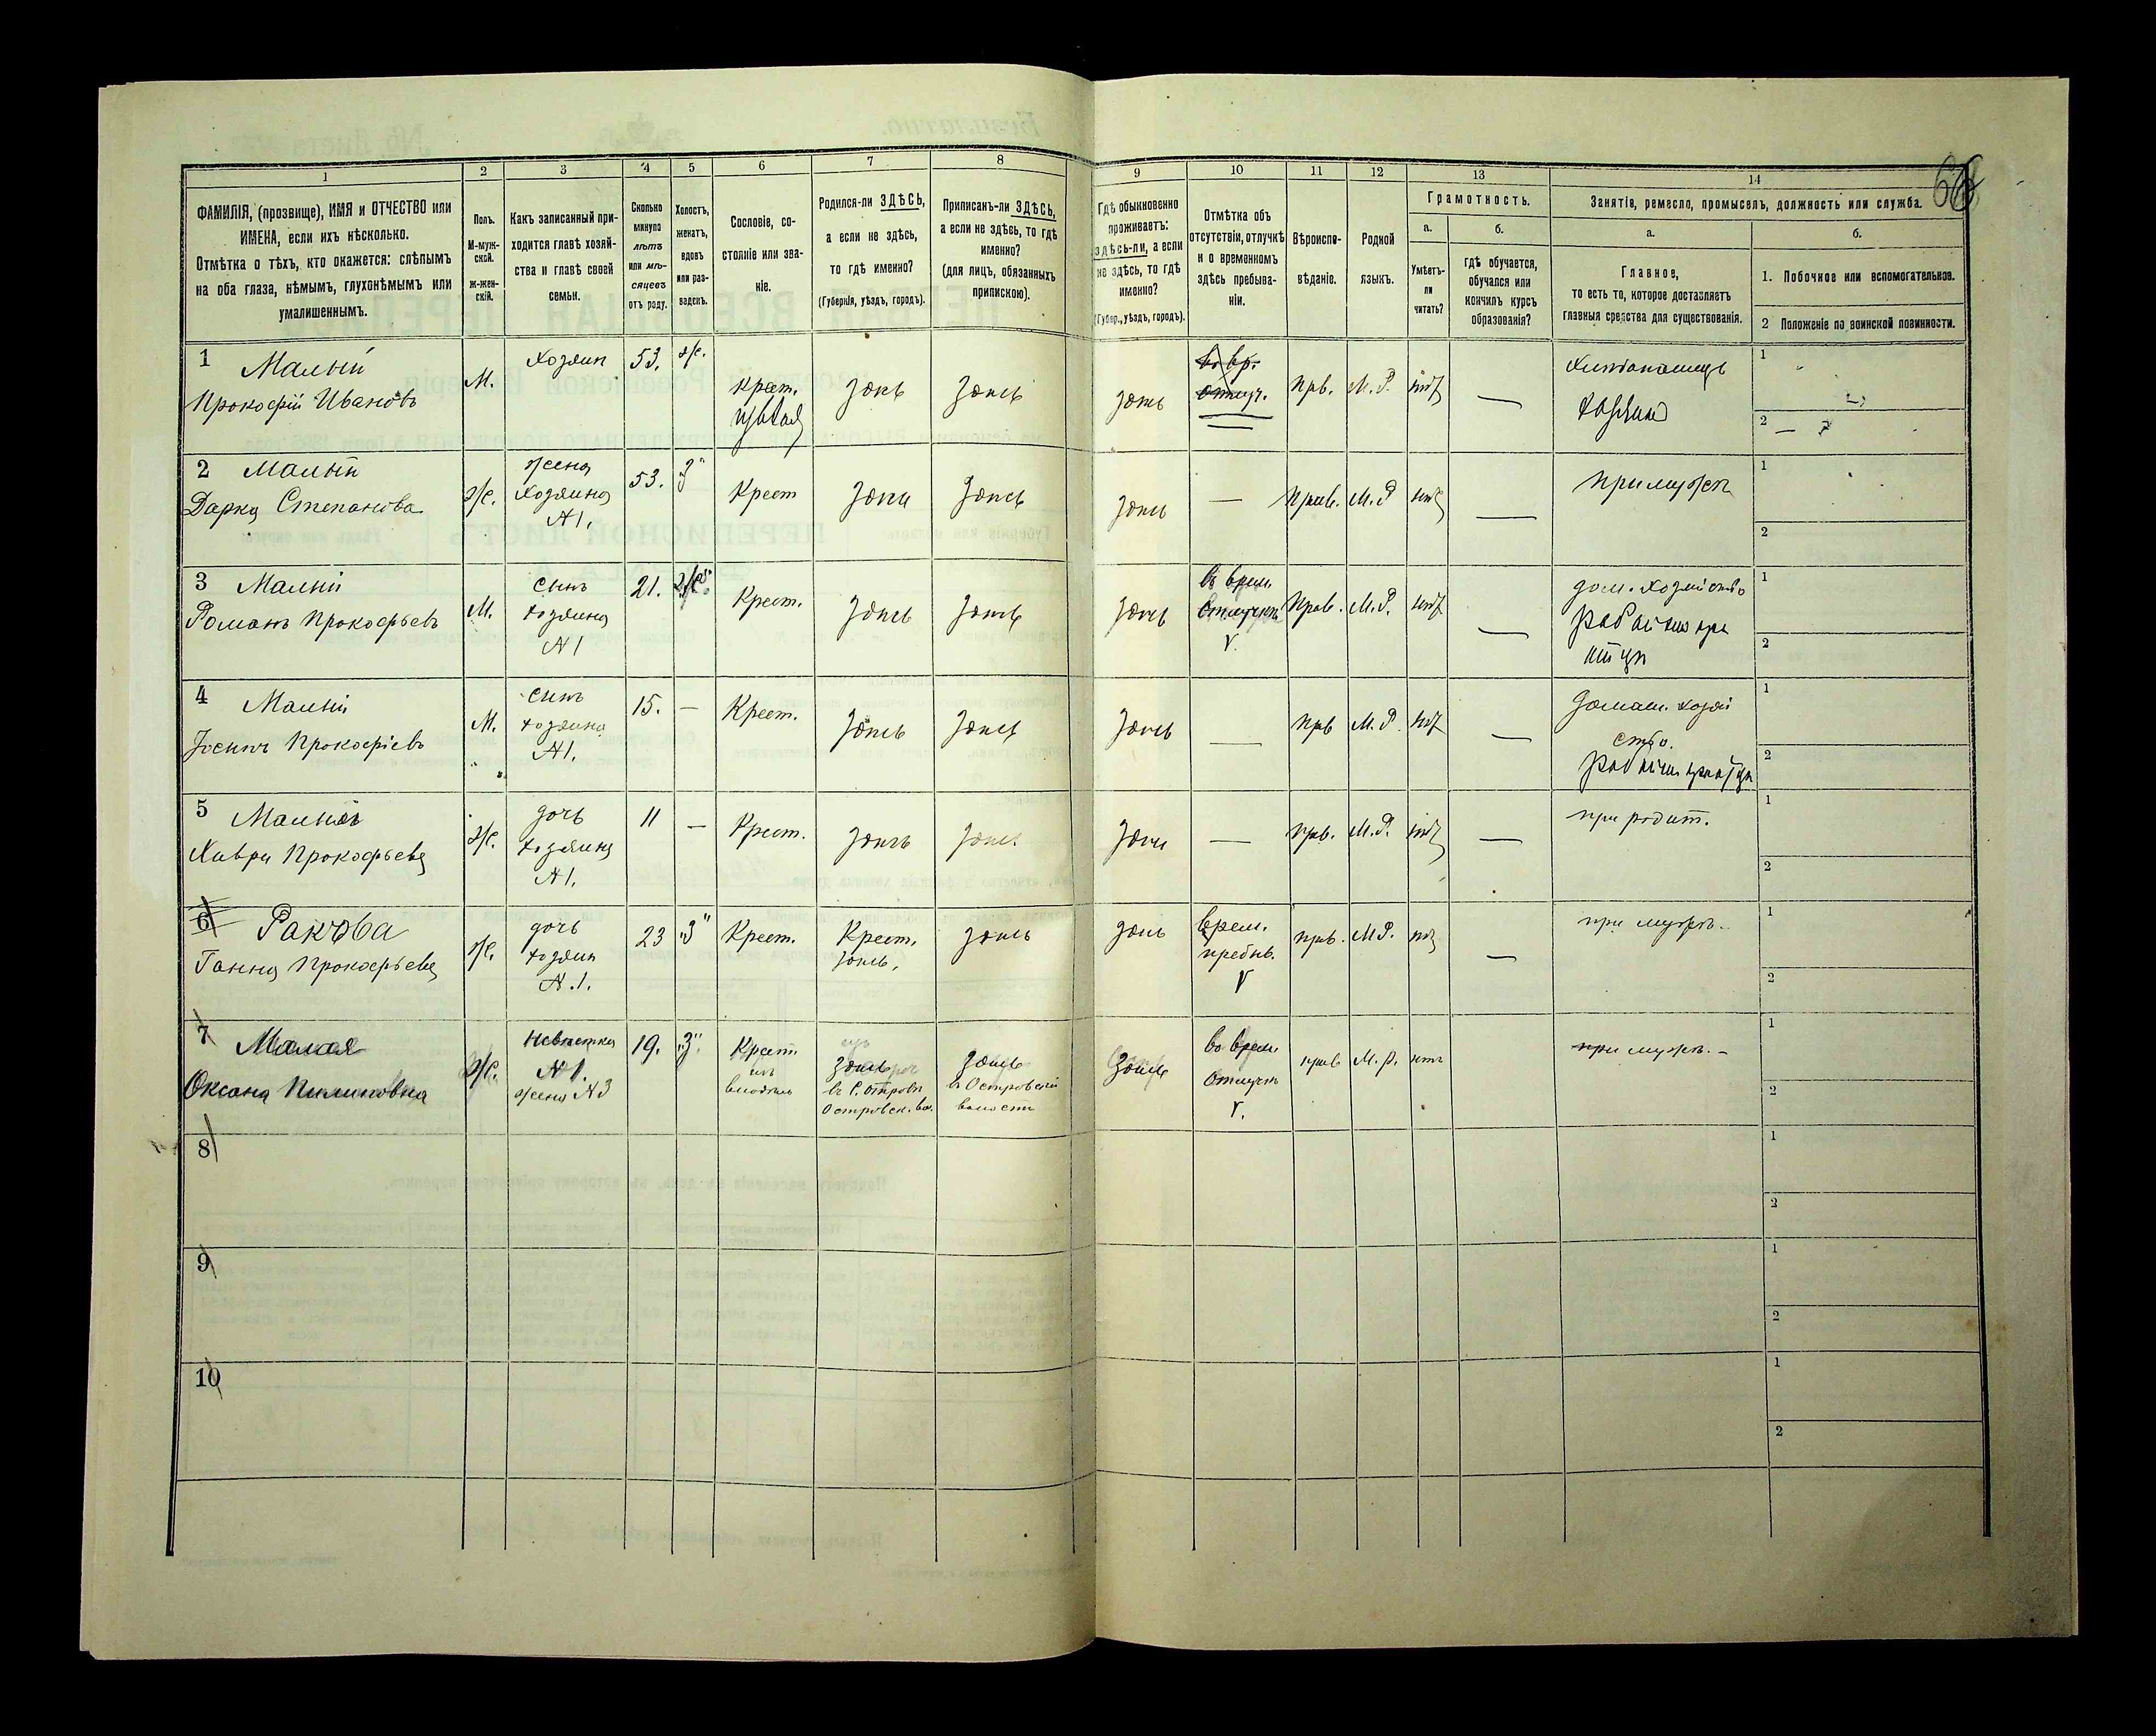 66
1 2 3 4 5 6 7 8 9 10 11 12 13 14
ФАМИЛІЯ, (прозвище), ИМЯ и ОТЧЕСТВО или
ИМЕНА, если ихъ нѣсколько.
Отмѣтка о тѣхъ, кто окажется: слѣпымъ
на оба глаза, нѣмымъ, глухонѣмымъ или
умалишеннымъ.
Полъ.
М-муж-
ской.
ж-жен-
скій.
Какъ записанный при-
ходится главѣ хозяй-
ства и главѣ своей
семьи.
Сколько
минуло
лѣтъ
или мѣ-
сяцевъ
отъ роду.
Холостъ,
женатъ,
вдовъ
или раз-
веденъ.
Сословіе, со-
стояніе или зва-
ніе.
Родился-ли ЗДѢСЬ,
а если не здѣсь,
то гдѣ именно?
(Губернія, уѣздъ, городъ).
Приписанъ-ли ЗДѢСЬ,
а если не здѣсь, то гдѣ
именно?
(для лицъ, обязанныхъ
припискою).
Гдѣ обыкновенно
проживаетъ:
здѣсь-ли, а если
не здѣсь, то гдѣ
именно?
(Губер., уѣздъ, городъ).
Отмѣтка объ
отсутствіи, отлучкѣ
и о временномъ
здѣсь пребыва-
ніи.
Вѣроиспо-
вѣданіе.
Родной
языкъ.
Грамотность.
а.
Умѣетъ-
ли
читать?
б.
гдѣ обучается,
обучался или
кончилъ курсъ
образованія?
Занятіе, ремесло, промыселъ, должность или служба.
а.
Главное,
то есть то, которое доставляетъ
главныя средства для существованія.
б.
1. Побочное или вспомогательное.
2 Положеніе по воинской повинности.
1 Малый
Прокофій Ивановъ
М.
Хозяин
53.
ж.
крест.
здѣсь
здѣсь
здѣсь
во вр.
отлуч.
Прв.
М. Р.
нѣт
—
1
2 —
2 Малый
Дарка Степанова
ж.
жена
Хозяина
№1.
53.
З
Крест
здѣсь
здѣсь
здѣсь
—
Прав.
М. Р
нѣт
—
при мужѣ
1
2
3 Малый
Романъ Прокофьевъ
М.
сынъ
хозяина
№1
21.
Крест.
здѣсь
здѣсь
здѣсь
въ врем.
отлучкѣ
V.
Прав.
М. Р.
нѣт
—
дом. хозяйство
1
2
4 Малый
Іосипъ Прокофіевъ
М.
сынъ
хозяина
№1.
15.
—
Крест.
здѣсь
здѣсь
здѣсь
—
прв
М. Р.
нѣт
—
домаш. хозяй
ство.
1
2
5
Хиври Прокофьева
ж.
дочь
хозяина
№1.
11
—
Крест.
здѣсь
здѣсь
здѣсь
—
прв.
М. Р.
нѣт
—
при родит.
1
2
6 Ракова
Ганна Прокофьева
ж.
дочь
хозяин
№.1.
23
З
Крест.
Крест.
здѣсь,
здѣсь
здѣсь
врем.
пребыв.
V
прв.
М Р.
нѣт
—
при мужѣ.
1
2
7 Малая
Оксана Пилиповна
ж.
Невѣстка
№1.
жена №3
19.
З
Крест
здѣсь
въ С. Островѣ
Островск. вол.
здѣсь
въ Островской
волости
здѣсь
во врем.
отлучкѣ
V.
прав
М. Р.
нѣтъ
при мужѣ. -
1
2
8
1
2
9
1
2
10
1
2